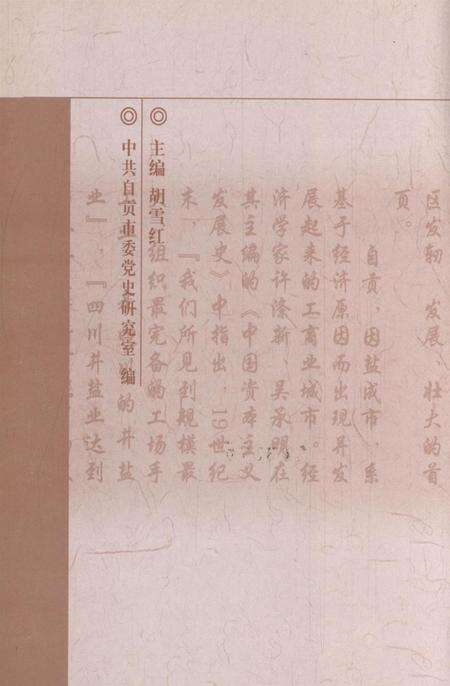 区发轫、发展、壮大的首
页。
自贡，因盐成市，系
基于经济原因而出现并发
展起来的工商业城市。经
济学家许涤新、吴承明在
其主编的《中国资本主义
发展史》中指出，19世纪
末，『我们所见到规模最
◎ 主编 胡雪红
组织最完备的工场手
◎ 中共自贡市委党史研究室 编
的井盐
业』，『四川井盐业达到